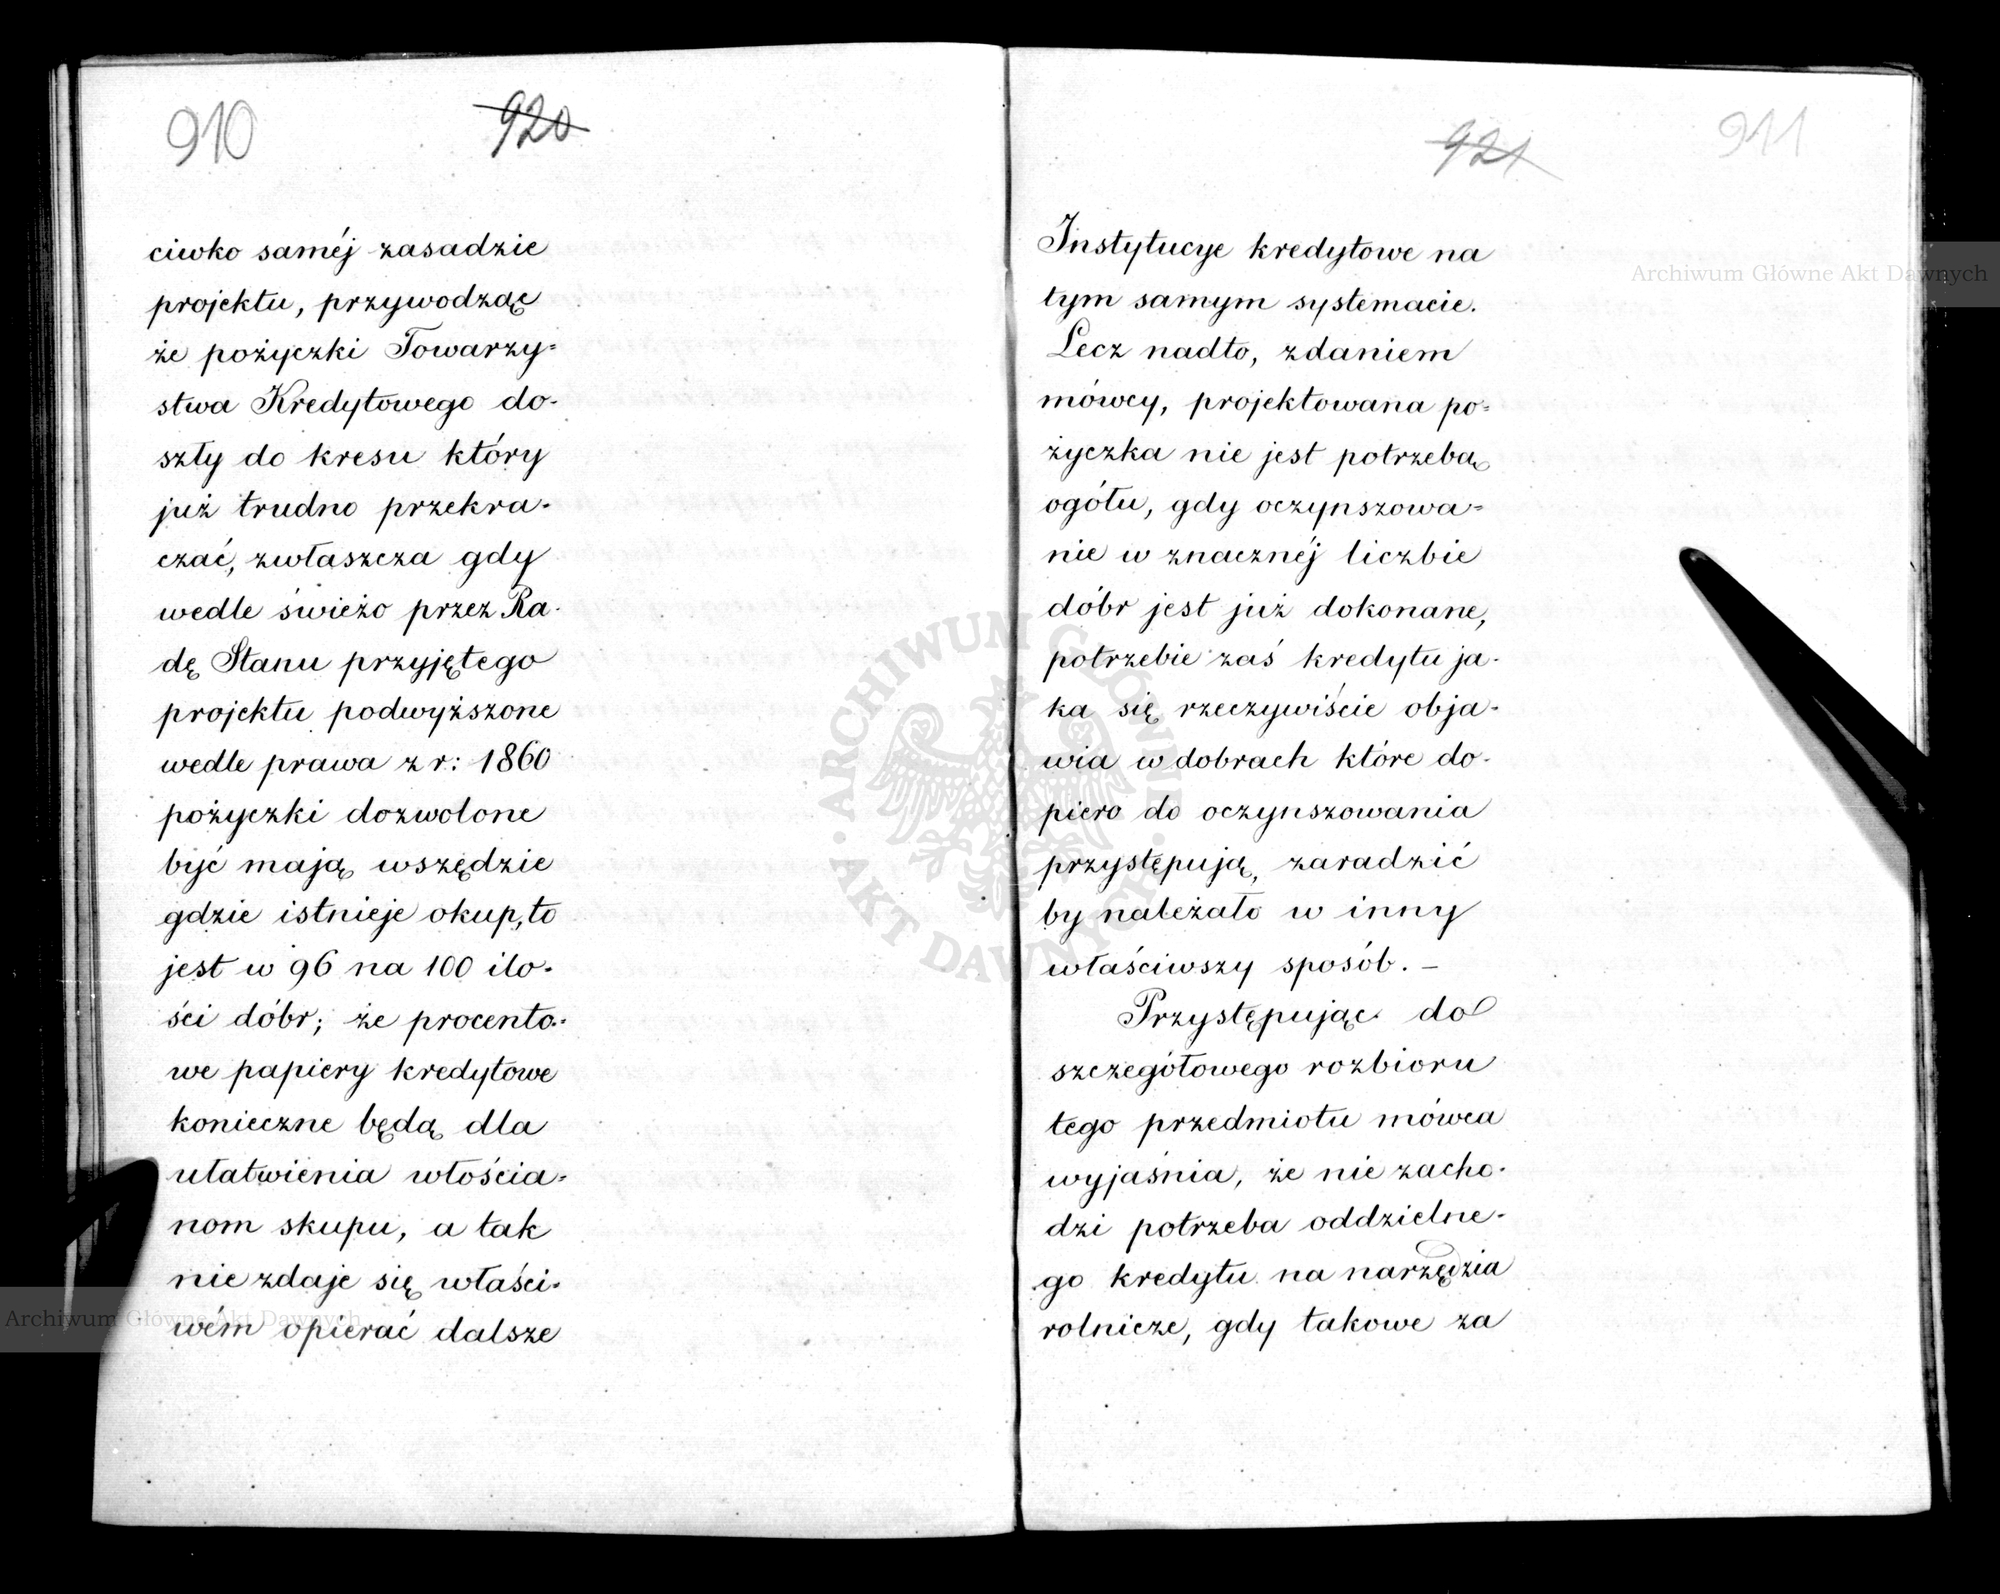 910
920
ciwko saméj zasadzie
projektu, przywodząc
że pożyczki Towarzy=
stwa Kredytowego do-
szły do kresu który
już trudno przekra-
czać, zwłaszcza gdy
wedle świeżo przez Ra-
dę Stanu przyjętego
projektu podwyższone
wedle prawa z r: 1860
pożyczki dozwolone
być mają wszędzie
gdzie istnieje okup, to
jest w 96 na 100 ilo-
ści dóbr; że procento-
we papiery kredytowe
konieczne będą dla
ułatwienia włościa-
nom skupu, a tak
nie zdaje się właści-
wém opierać dalsze
921
911
Instytucye kredytowe na
tym samym systemacie.
Lecz nadto, zdaniem
mówcy, projektowana po=
życzka nie jest potrzebą
ogółu, gdy oczynszowa=
nie w znacznéj liczbie
dóbr jest już dokonane,
potrzebie zaś kredytu ja-
ka się rzeczywiście obja-
wia w dobrach które do-
piero do oczynszowania
przystępują, zaradzić
by należało w inny
właściwszy sposób. –
Przystępując do
szczegółowego rozbioru
tego przedmiotu mówca
wyjaśnia, że nie zacho-
dzi potrzeba oddzielne-
go kredytu na narzędzia
rolnicze, gdy takowe za
Archiwum Główne Akt Dawnych
Archiwum Główne Akt Dawnych
ARCHIWUM GŁÓWNE · AKT DAWNYCH ·